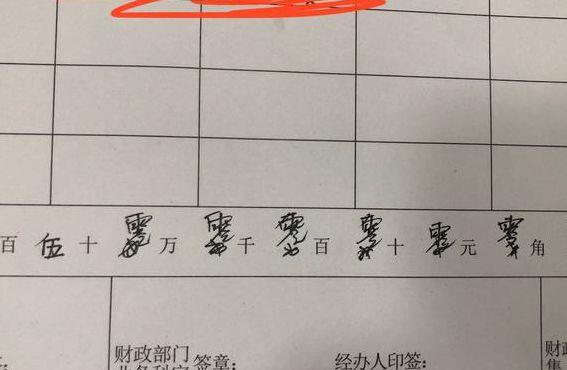 百 伍 十 零 万 零 千 零 百 零 十 零 元 零 角
财政部门 签章： 经办人印签： 财政